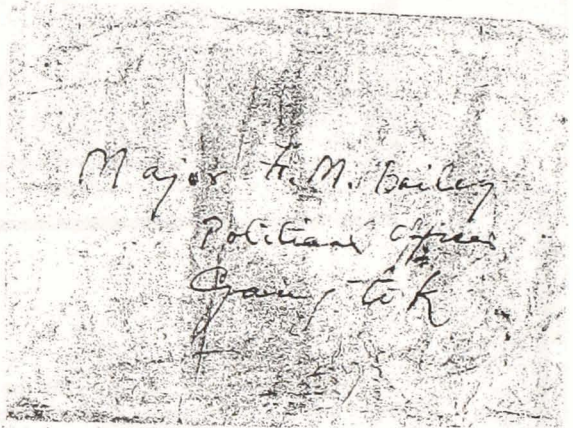 Major F. M. Bailey
Political Officer
Gangtok